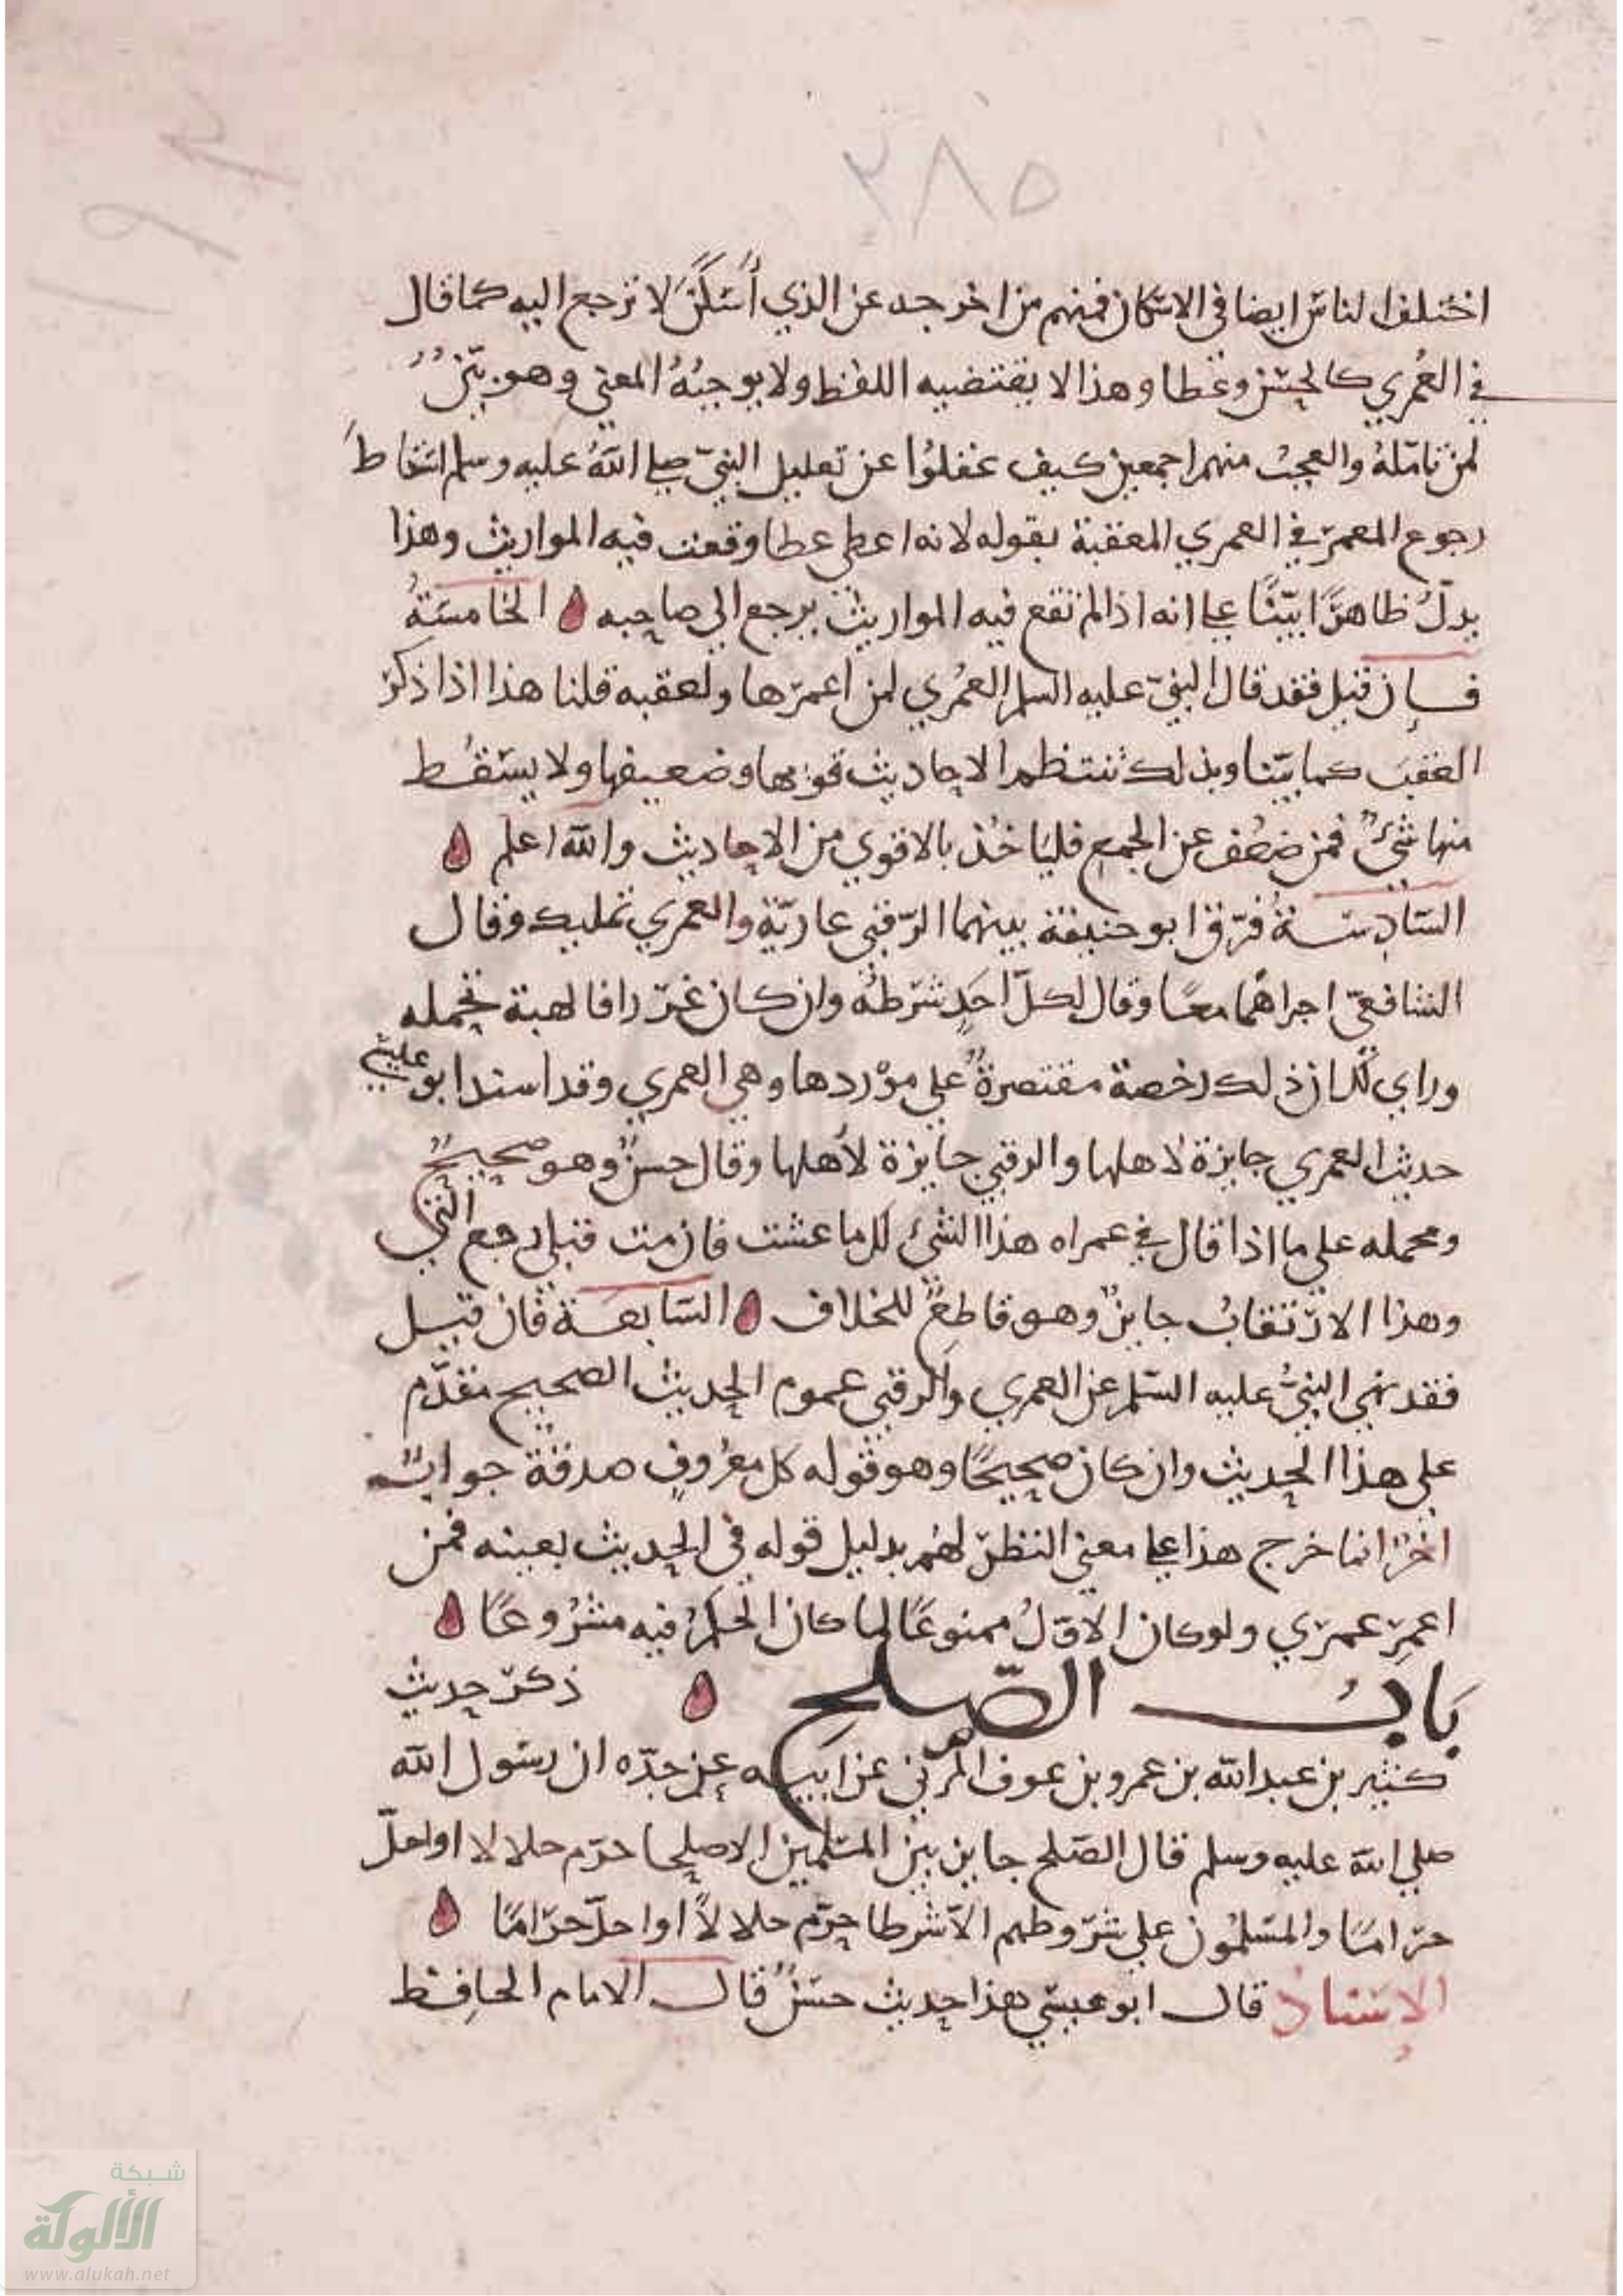 ١٩٢
٢٨٥
اختلف الناس ايضا في الاسكان فمنهم من اخرجه عن الذي أُسْكَن لا ترجع اليه كما قال
في العُمري كالحسن وعطا وهذا لا يقتضيه اللفظ ولا يوجبُهُ المعني وهو بيّنٌ
لمن تامّلهُ والعجبُ منهم اجمعين كيف غفلوا عن تعليل النبيّ صلي اللهُ عليه وسلم اسْقاطَ
رجوع المعمرّ في العمري المعقبة بقوله لانه اعطي عطا وقعت فيه المواريث وهذا
يدلّ ظاهرًا بيّنًا علي انه اذا لم تقع فيه المواريث يرجع الي صاحبه الخامسَةُ
فإن قيل فقد قال النبيّ عليه السلم العمُري لمن اعمرّها ولعقبه قلنا هذا اذا ذكرّ
العقبَ كما بيّنا وبذلك تنتظم الاحاديث قويها وضعيفها ولا يسْقُط
منها شيءٌ فمن ضعُف عن الجمع فليَاخُذ بالاقوي من الاحاديث والله اعلم
السّادِسَةُ فرّق ابو حنيفة بينهما الرّقبي عاريّة والعمري تمليك وقال
الشافعيّ اجراهُما معًا وقال لكلّ احَدٍ شرّطهُ وان كان غرّرا فالهبة تحمله
وراي ملك ان ذلك رخصة مقتصرةٌ علي موْردها وهي العمري وقد اسند ابو عيسي
حديث العمري جايزة لاهلها والرقبي جايزة لأهلها وقال حسنٌ وهو صحيحٌ
ومحمله علي ما اذا قال في عمراه هذا الشئ لك ما عشت فان مت قبلي رجع اليّ
وهذا الارّتقابُ جايزٌ وهو قاطعٌ للخلاف السّابعَة فان قيل
فقد نهي النبيُّ عليه السّلم عن العمري والرقبي عموم الحديث الصحيح مقدّم
علي هذا الحديث وان كان صحيحًا وهو قوله كل معرُوفٍ صدقة جوابٌ
اخرّ انما خرج هذا علي معني النظرّ لهُم بدليل قوله في الحديث بعينه فمن
اعمِرّ عمرّي ولو كان الاوّلُ ممنوعًا لما كان الحكمُ فيه مشرُوعًا
بَابُ الصّلح ذكرّ حديث
كثير بن عبد الله بن عمرو بن عوف المُزني عن ابيه عن جدّه ان رسَول الله
صلي الله عليه وسلم قال الصّلح جايز بين المسْلمين الا صلحا حرّم حلالا او احلّ
حرّامًا والمسْلمُون علي شرّوطهم الاّ شرطا حرّم حلالاً او احلّ حرّامًا
الإسْنَادُ قال ابو عيسَي هذا حديث حسَنٌ قال الامام الحافِظ
شبكة
الألوكة
www.alukah.net